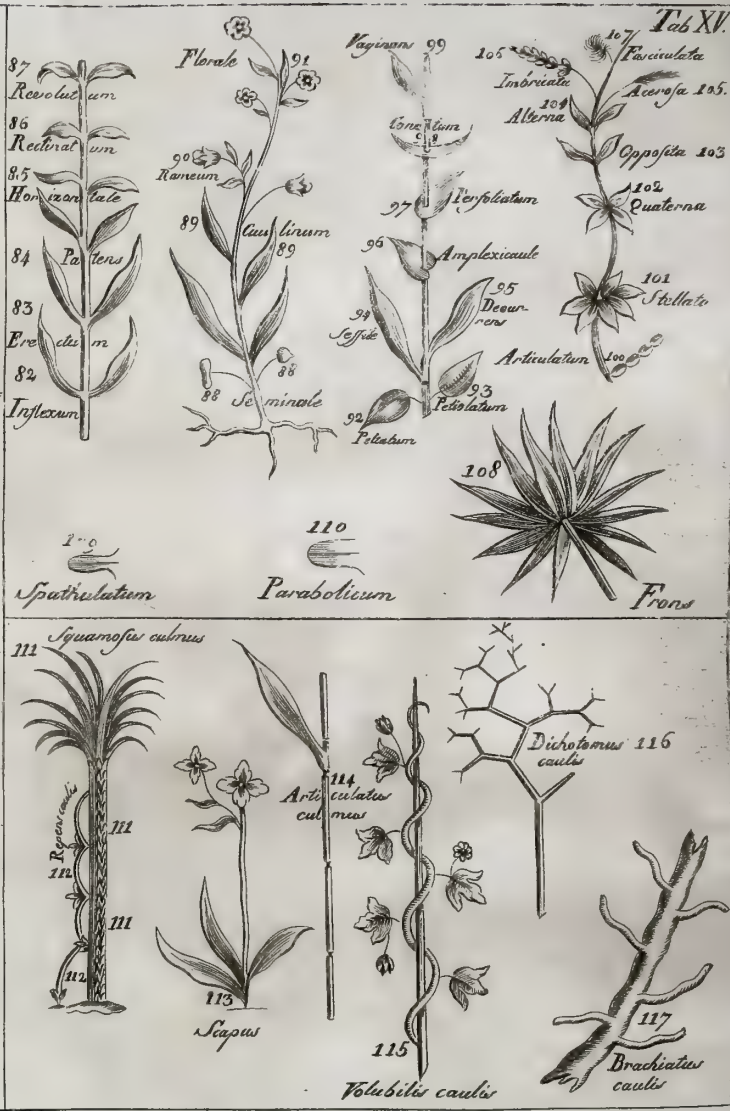 Tab XV.
87
Revolutum
86
Reclinatum
85
Horizontale
84
Patens
83
Erectum
82
Inflexum
Florale
91
90
Rameum
89
Caulinum
89
88
88
Seminale
Vaginans 99
Conatum
98
97
Perfoliatum
96
Amplexicaule
95
Decur-
rens
94
Sessile
93
Petiolatum
92
Peltatum
107
Fasciculata
106
Imbricata
Acerosa 105.
104
Alterna
Opposita 103
102
Quaterna
101
Stellato
Articulatum 100
108
Frons
Spathulatum
110
Parabolicum
Squamosus culmus
111
Repens caulis
111
112
111
112
113
Scapus
114
Articulatus
culmus
115
Volubilis caulis
Dichotomus 116
caulis
117
Brachiatus
caulis